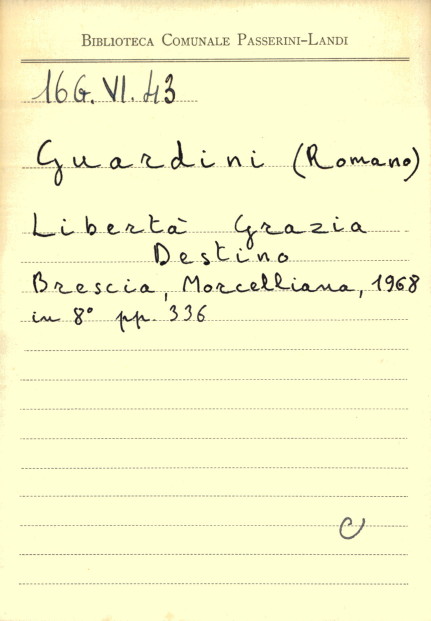 Biblioteca Comunale Passerini-Landi
16 G. VI. 43
Guardini (Romano)
Libertà Grazia
Destino
Brescia, Morcelliana, 1968
in 8° pp. 336
C